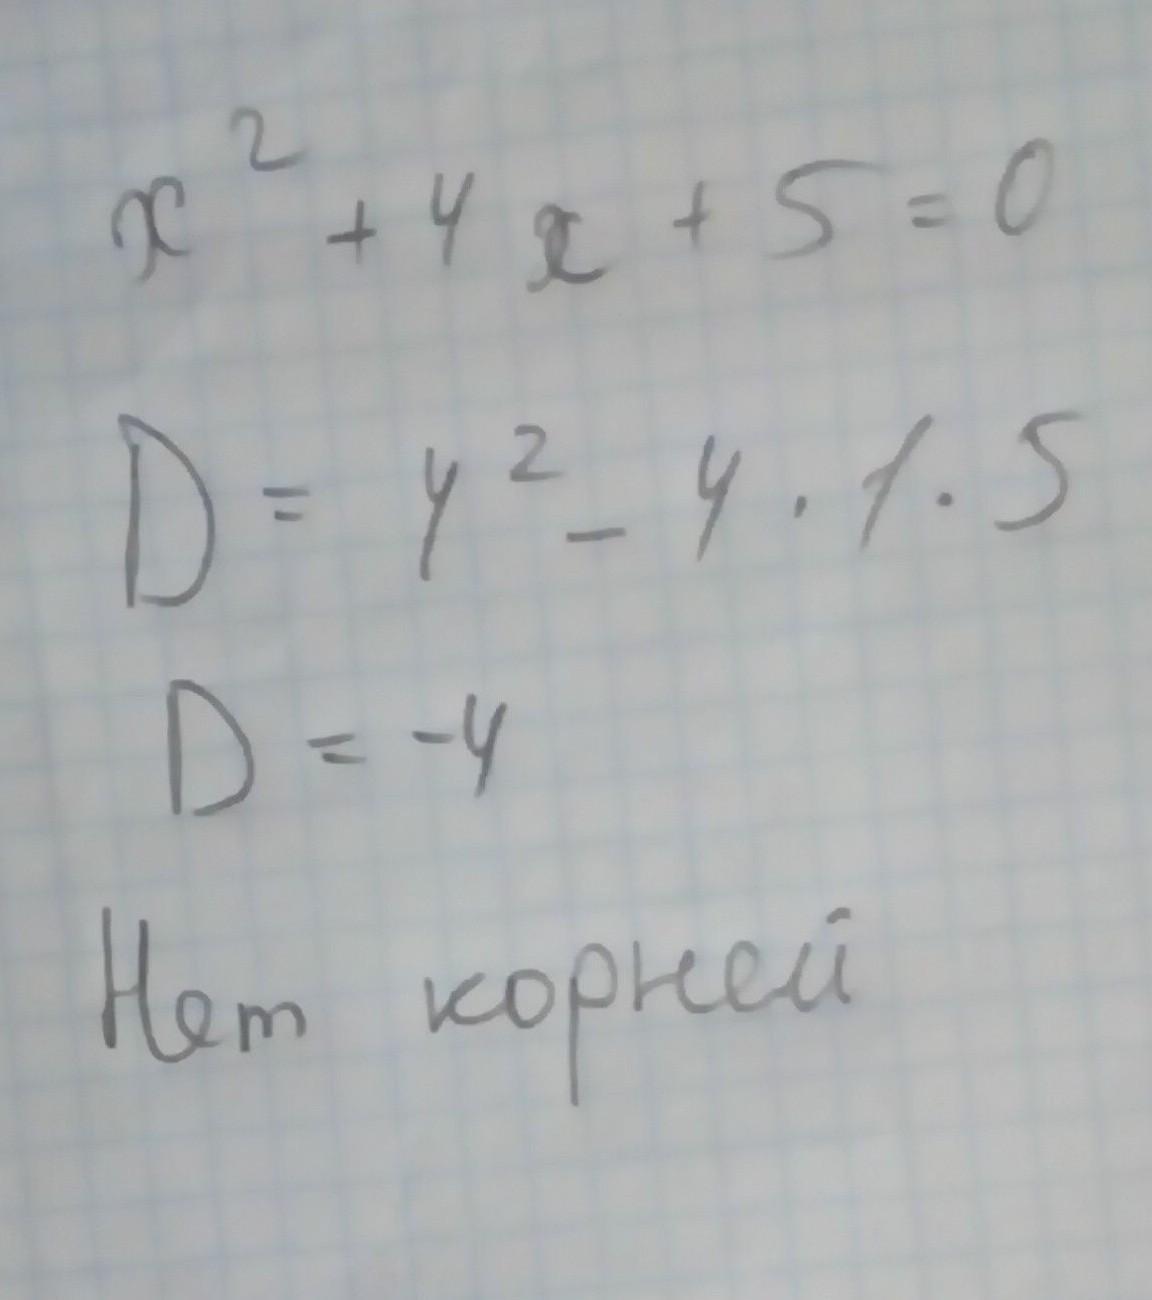 x² + 4x + 5 = 0
D = 4² - 4 · 1 · 5
D = -4
Нет корней